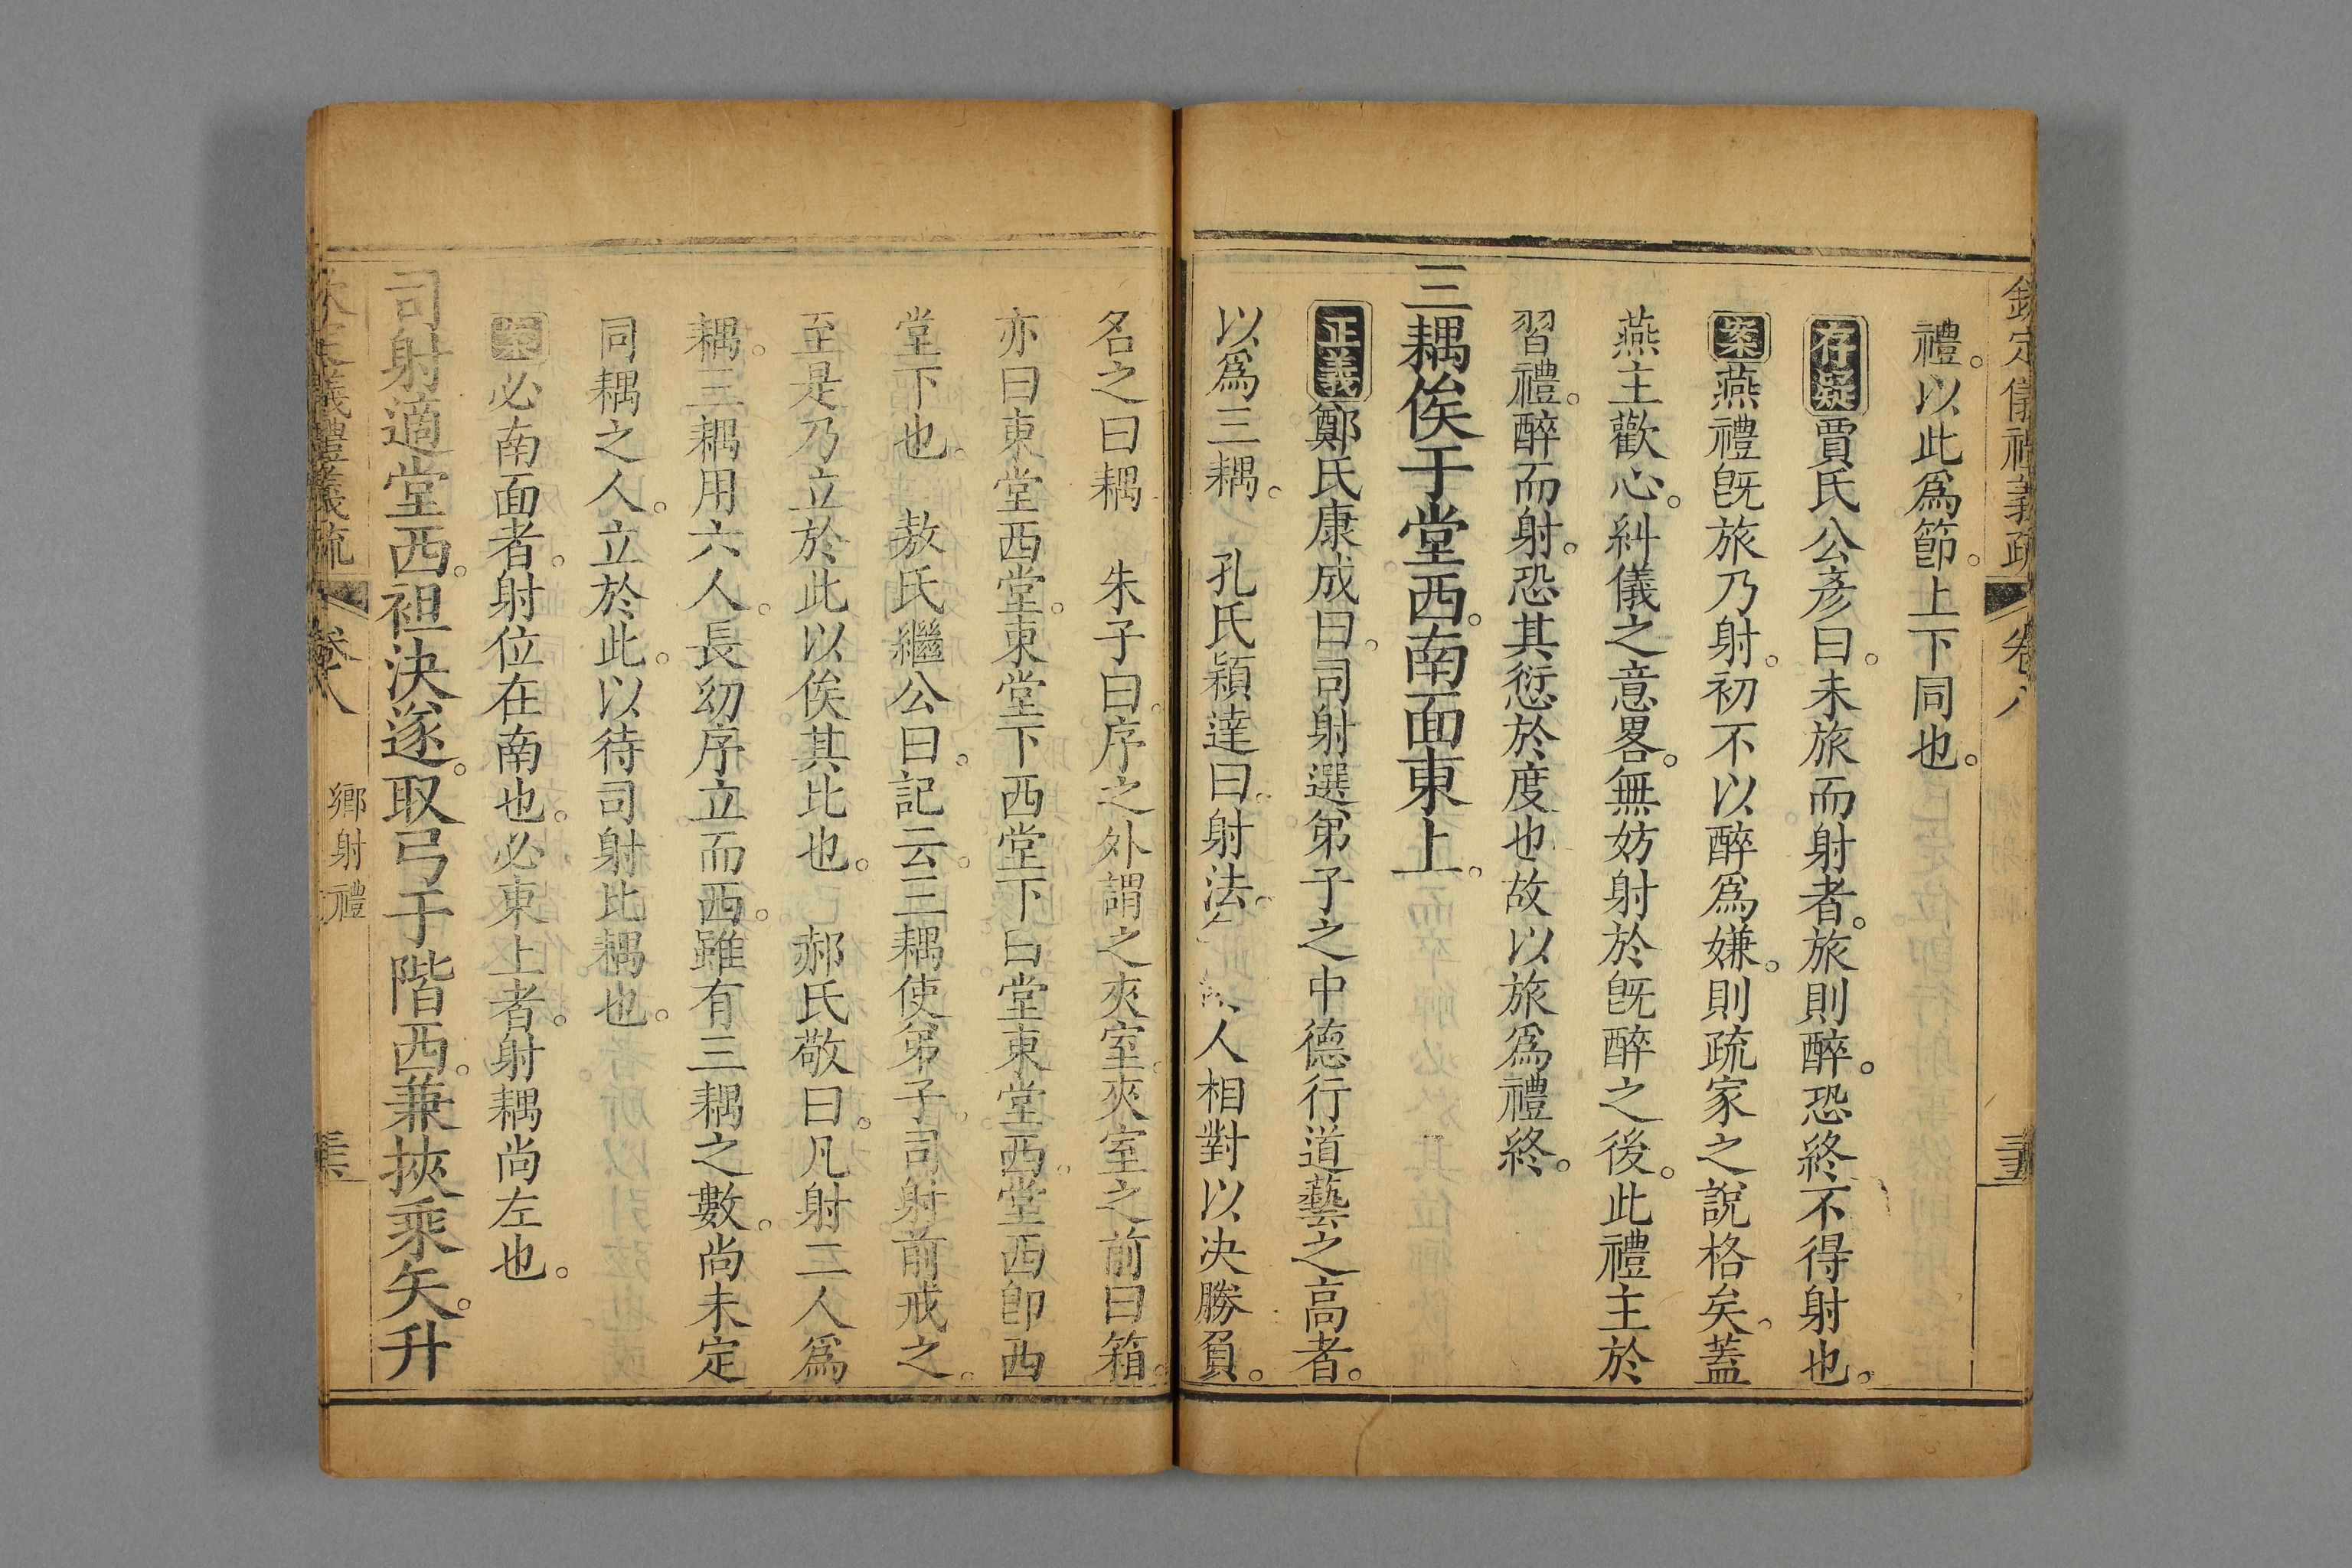 欽定儀禮義疏 卷八
禮。以此爲節。上下同也。
存疑賈氏公彥曰。未旅而射者。旅則醉。恐終不得射也。
案燕禮旣旅乃射。初不以醉爲嫌。則疏家之說格矣。蓋
燕主歡心。糾儀之意畧。無妨射於旣醉之後。此禮主於
習禮。醉而射。恐其愆於度也故以旅爲禮終。
三耦俟于堂西。南面東上。
正義鄭氏康成曰。司射選弟子之中德行道藝之高者。
以爲三耦。 孔氏穎達曰。射法。人相對以决勝負。
名之曰耦 朱子曰。序之外謂之夾室。夾室之前曰箱。
亦曰東堂西堂。東堂下西堂下曰堂東堂西。堂西卽西
堂下也。 敖氏繼公曰。記云。三耦使弟子。司射前戒之。
至是乃立於此以俟其比也。 郝氏敬曰。凡射二人爲
耦。三耦用六人。長幼序立而西。雖有三耦之數。尚未定
同耦之人。立於此。以待司射比耦也。
案必南面者。射位在南也。必東上者。射耦尚左也。
司射適堂西。袒決遂。取弓于階西。兼挾乘矢。升
欽定儀禮義疏 卷八 鄉射禮